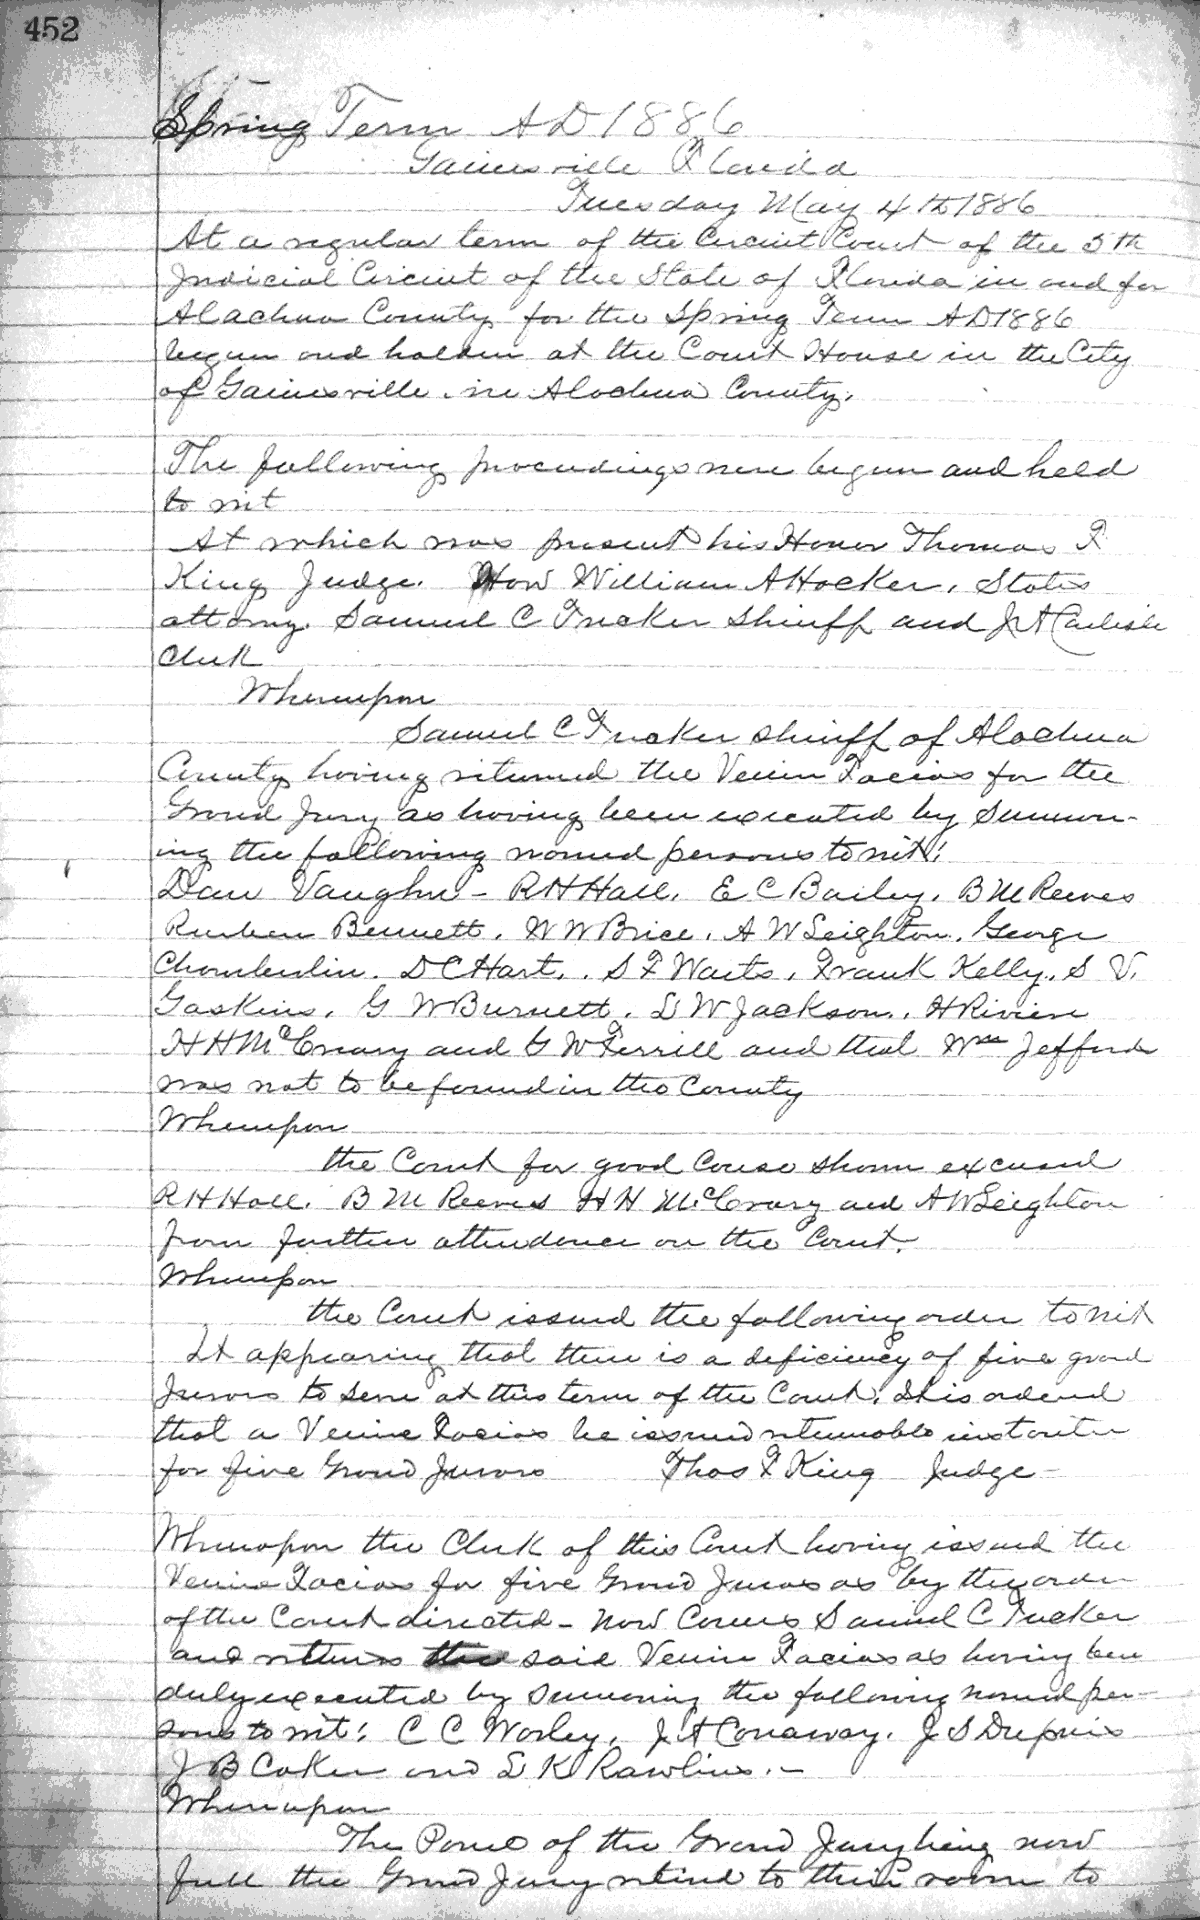 452
Spring Term AD 1886
Gainesville Florida
Tuesday May 4th 1886
At a regular term of the Circuit Court of the 5th
Judicial Circuit of the State of Florida in and for
Alachua County for the Spring Term AD 1886
begun and holden at the Court House in the City
of Gainesville in Alachua County.
The following proceedings were begun and held
to wit
At which was present his Honor Thomas F
King Judge. Hon William A Hocker, States
attorney. Samuel C Tucker Sheriff and J A Carlisle
Clerk
Whereupon
Samuel C Tucker Sheriff of Alachua
County having returned the Venire Facias for the
Grand Jury as having been executed by Summon-
ing the following named persons to wit:
Dan Vaughn - R H Hall, E C Bailey, B M Reeves
Reuben Bennett, W W Brice, A W Leighton, George
Chamberlin, D C Hart, S F Waits, Frank Kelly, S V.
Gaskins, G W Burnett, D W Jackson, H Riviere
H H McCreary and G W Ferrill and that Wm Jefford
was not to be found in the County
Whereupon
the Court for good Cause shown excused
R H Hall, B M Reeves H H McCrary and A W Leighton
from further attendance on the Court.
Whereupon
the Court issued the following order to wit
It appearing that there is a deficiency of five grand
Jurors to serve at this term of the Court. It is ordered
that a Venire Facias be issued returnable instanter
for five Grand Jurors Thos F King Judge -
Whereupon the Clerk of this Court having issued the
Venire Facias for five Grand Jurors as by the order
of the Court directed - now Comes Samuel C Tucker
and returns the said Venire Facias as having been
duly executed by summoning the following named per-
sons to wit: C C Worley, J A Conaway, J S Dupuis
J B Coker and L K Rawlins. -
Whereupon
The Panel of the Grand Jury being now
full the Grand Jury retired to their room to